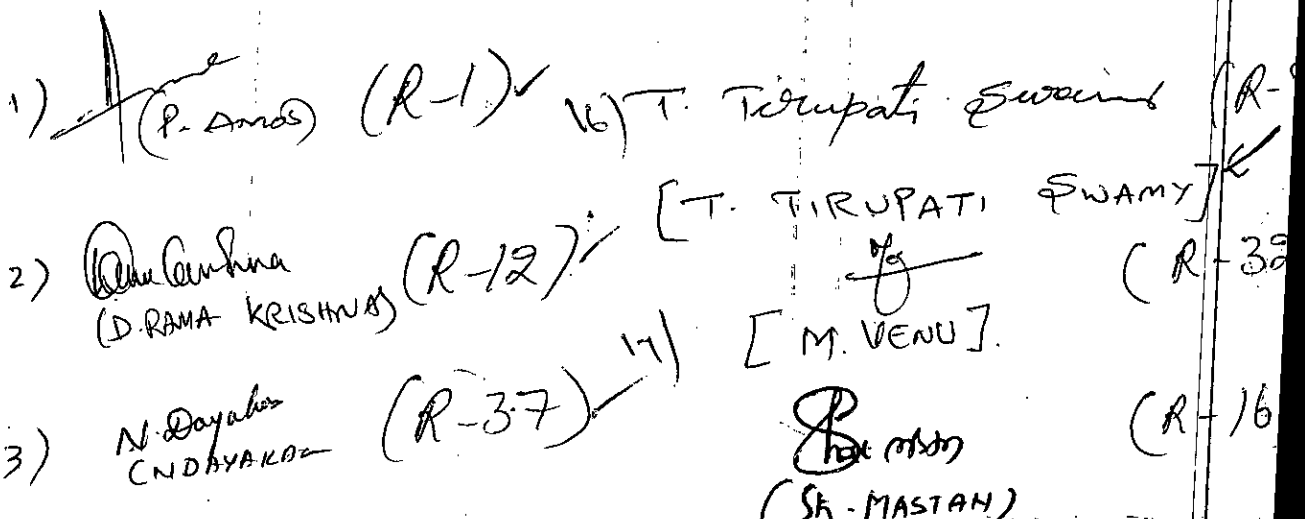 1) (P. AMOS) (R-1)
2) Rama Krishna (R-12)
(D. RAMA KRISHNA)
3) N. Dayakar (R-37)
(N DAYAKAR
16) T. Tirupati Swamy (R-
[T. TIRUPATI SWAMY]
(R-32
17) [M. VENU].
(R-16
(SK. MASTAN)